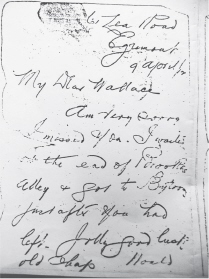 Lea Road
Egremont
9 April
My Dear Wallace
Am very sorry
I missed you. I waited
at the end of
Alley & got to
just after you had
left. Jolly good luck
old chap